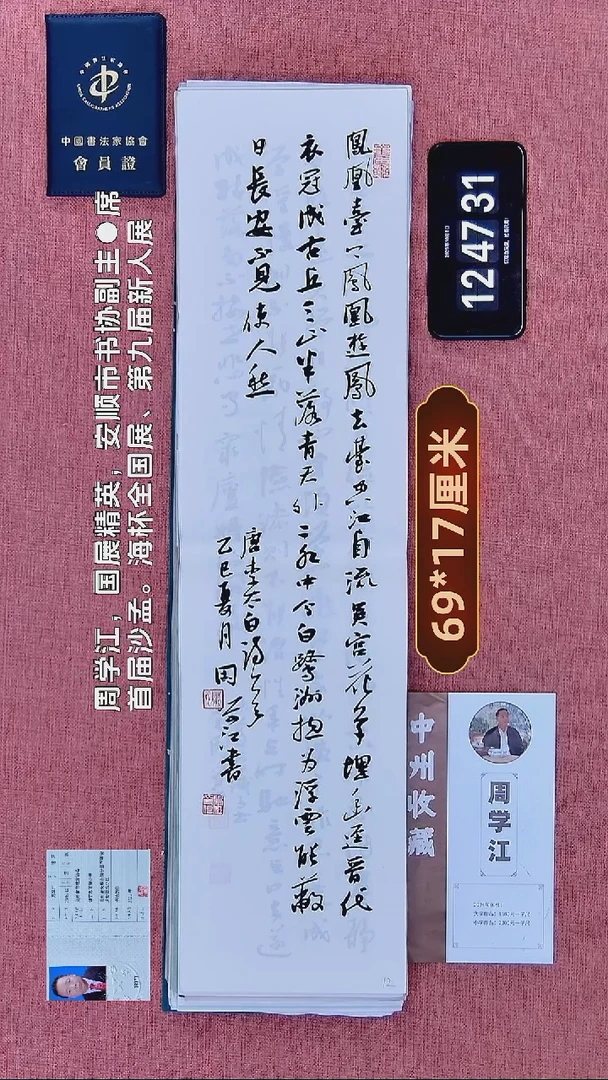 中國書法家協會
會員證
周学江，国展精英，安顺市书协副主●席
首届沙孟。海杯全国展、第九届新人展
鳳凰臺上鳳凰遊鳳去臺空江自流吳宮花草埋幽逕晉代
衣冠成古丘三山半落青天外二水中分白鷺洲總为浮雲能蔽
日長安不見使人愁
唐李太白詩一首
乙巳夏月周学江書
12 47 31
69*17厘米
中州收藏
周学江